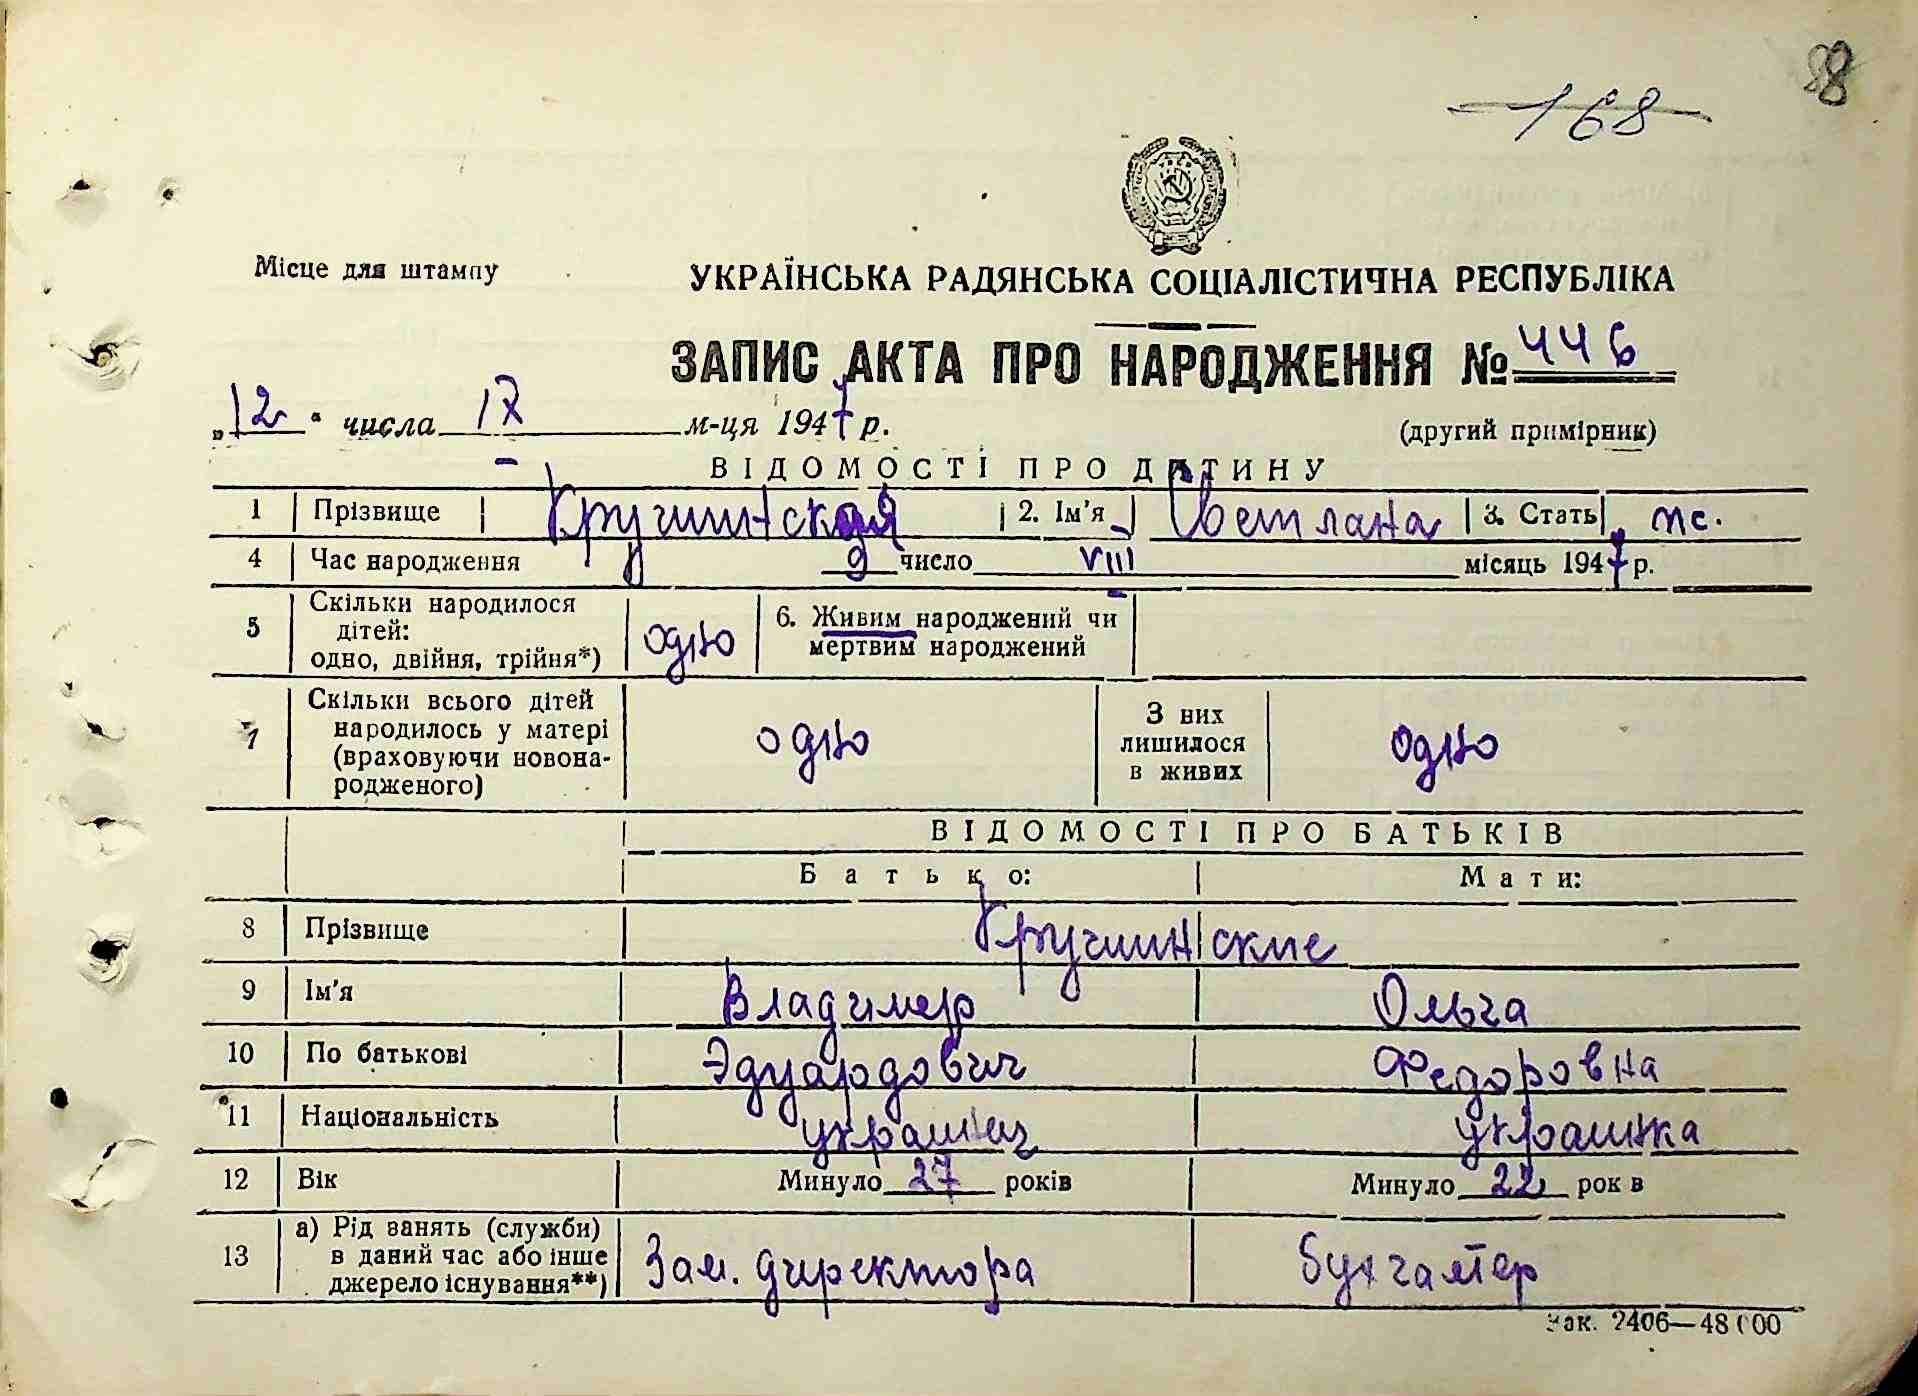 98
168
Місце для штампу
УКРАЇНСЬКА РАДЯНСЬКА СОЦІАЛІСТИЧНА РЕСПУБЛІКА
ЗАПИС АКТА ПРО НАРОДЖЕННЯ № 446
„12“ числа IX м-ця 1947 р.
(другий примірник)
ВІДОМОСТІ ПРО ДИТИНУ
1 Прізвище Кручинская 2. Ім'я Светлана 3. Стать ж.
4 Час народження 9 число VIII місяць 1947 р.
5 Скільки народилося дітей: одно, двійня, трійня*) одно 6. Живим народжений чи мертвим народжений
7 Скільки всього дітей народилось у матері (враховуючи новонародженого) одно З них лишилося в живих одно
ВІДОМОСТІ ПРО БАТЬКІВ
Батько: Мати:
8 Прізвище Кручинские
9 Ім'я Владимир Ольга
10 По батькові Эдуардович Федоровна
11 Національність украинец украинка
12 Вік Минуло 27 років Минуло 22 рок в
13 а) Рід занять (служби) в даний час або інше джерело існування**) Зам. директора бухгалтер
Зак. 2406—48000